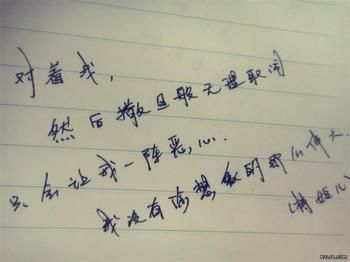 对着我，
然后撒旦般无理取闹
只会让我一阵恶心..
我没有你想象的那么伟大